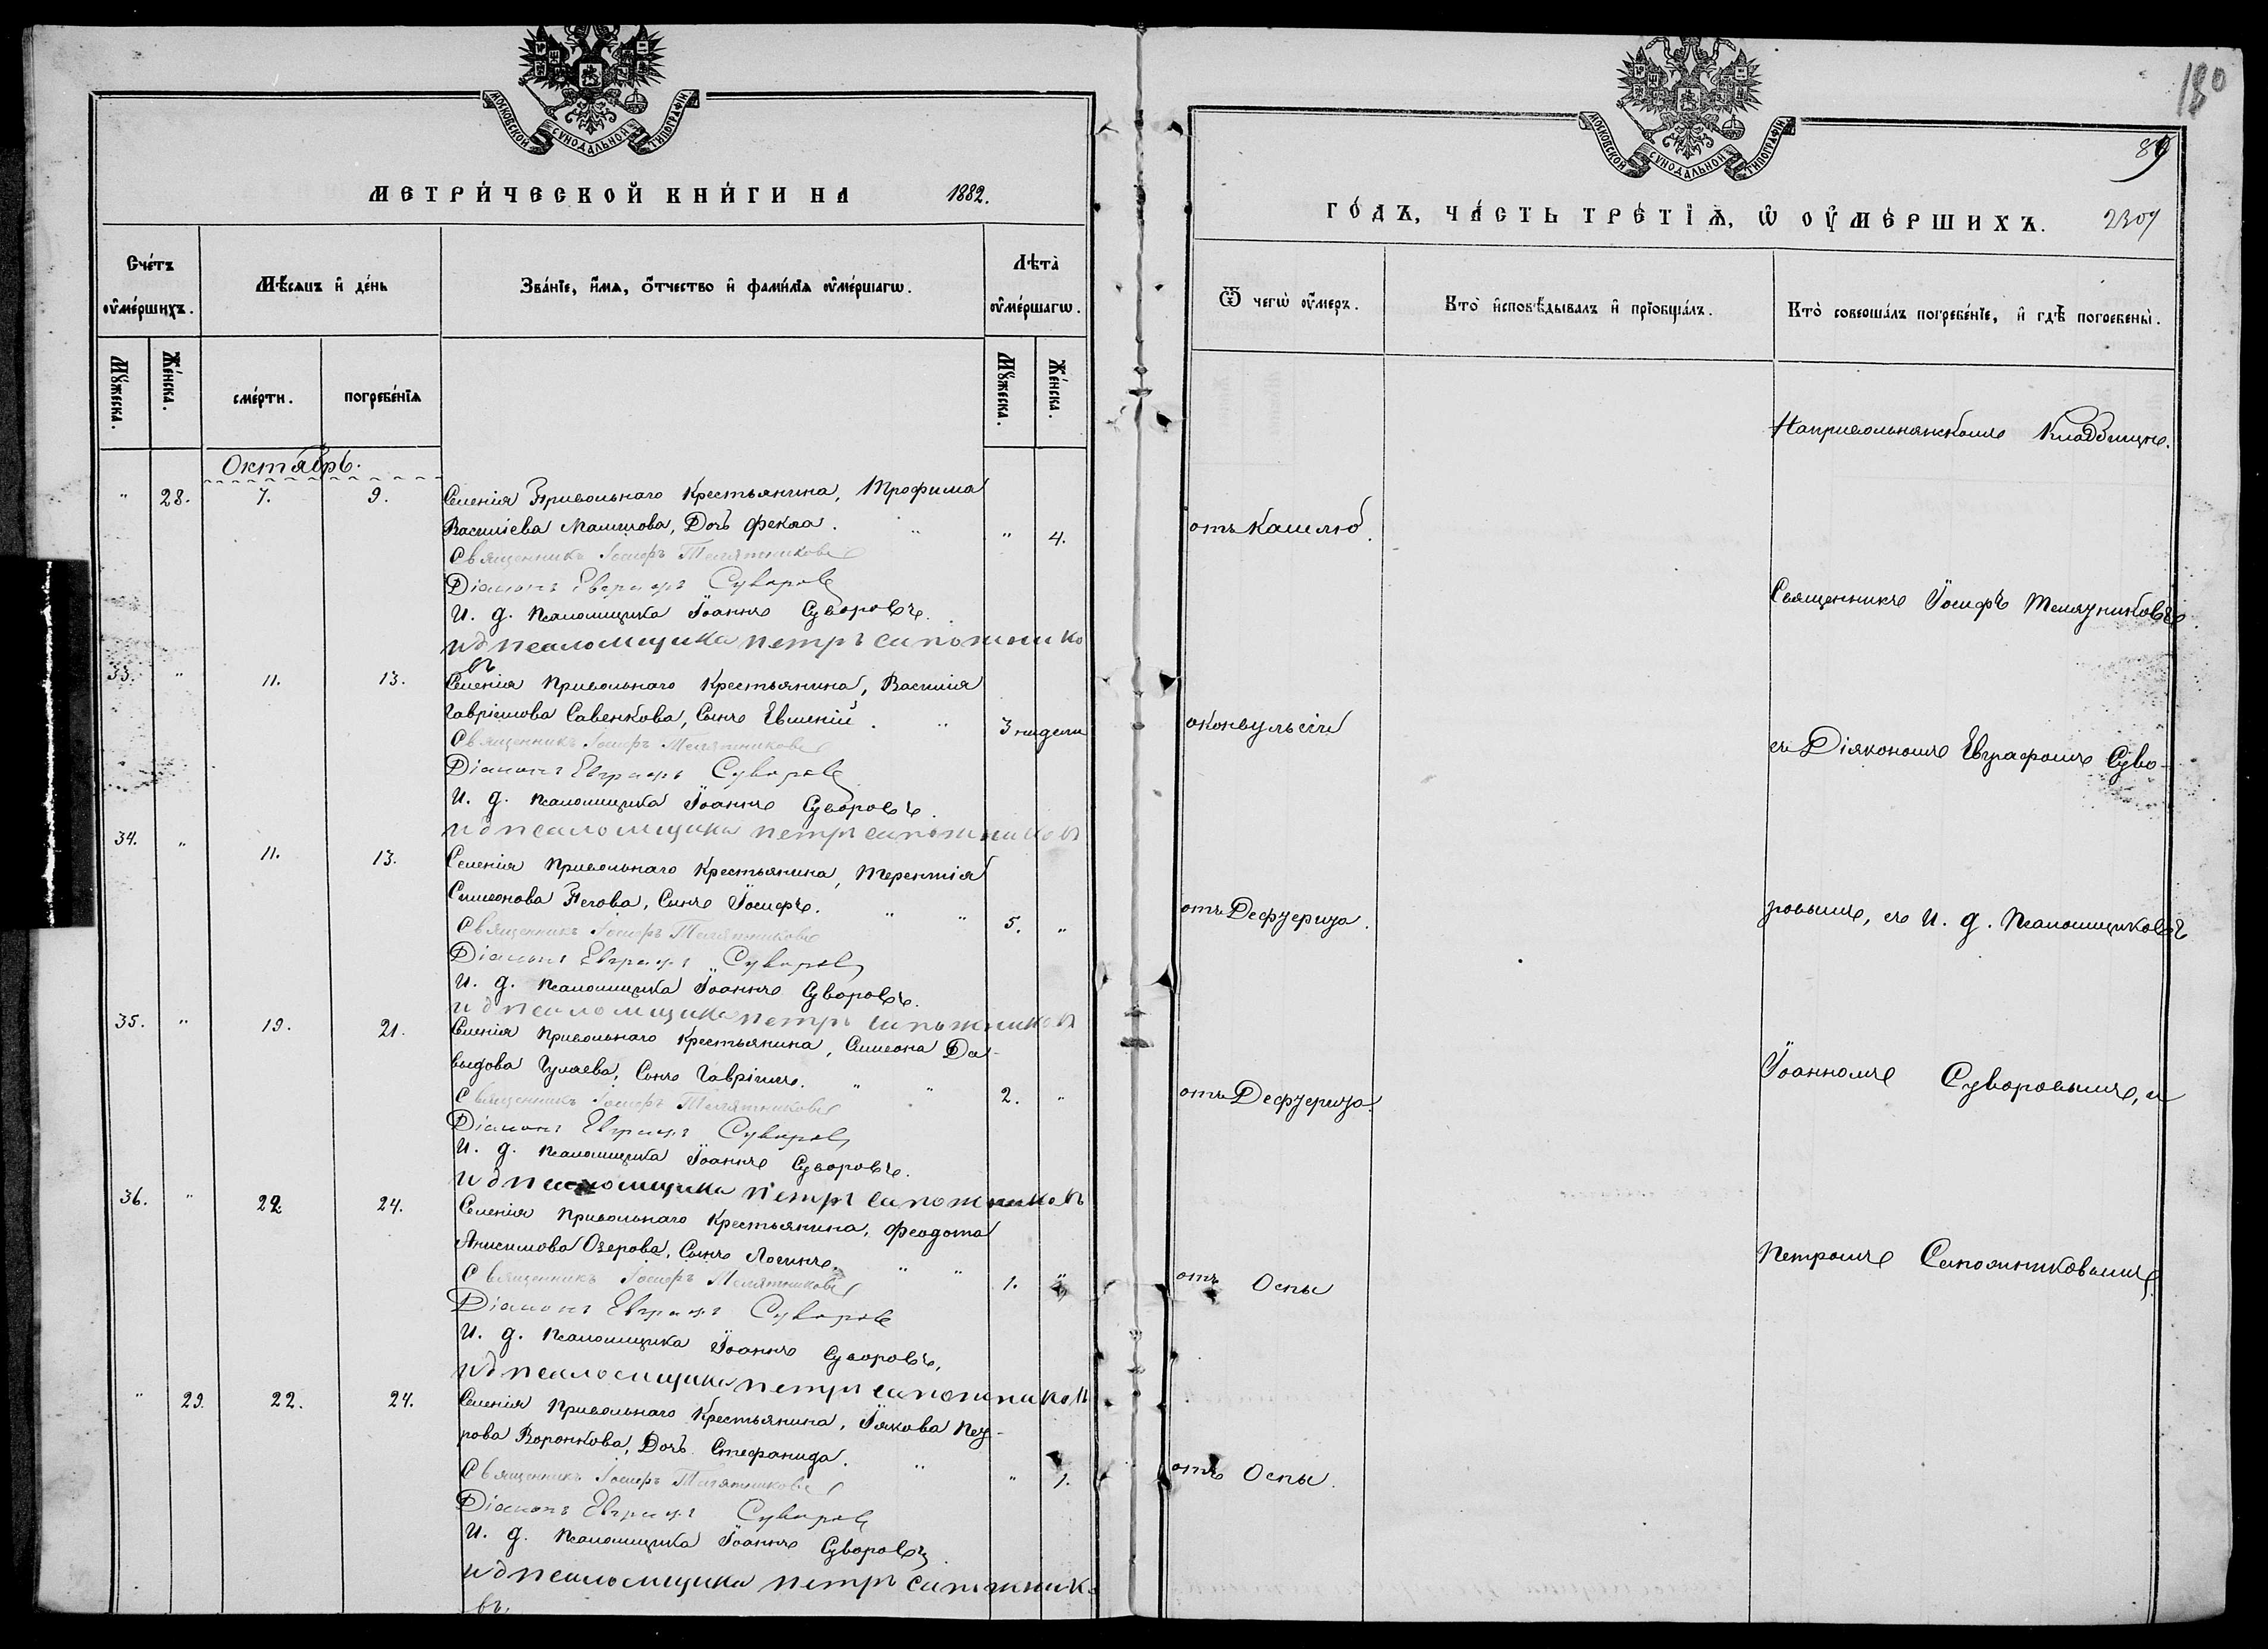 МОСКОВСКОЙ СУНОДАЛЬНОЙ ТИПОГРАФІИ
МЕТРИ́ЧЕСКОЙ КНИ́ГИ НА 1882.
Сче́тъ ᲂу҆ме́ршихъ.
Мѣ́сяцъ и҆ де́нь
Зва́нїе, и҆́мя, ѻ҆́тчество и҆ фами́лїя ᲂу҆ме́ршагѡ.
Лѣта̀ ᲂу҆ме́ршагѡ.
Мꙋ́жеска.
Же́нска.
сме́рти.
погребе́нїѧ
Мꙋ́жеска.
Же́нска.
Октябрь.
" 28. 7. 9. Селенія Привольнаго Крестьянина, Трофима
Василіева Мамшова, Дочь Фекла. " " 4.
Священникъ Іосифъ Телятниковъ
Діаконъ Евграфъ Суворовъ
И. д. Псаломщика Іоаннъ Суворовъ.
ид псаломщика петръ сапожнико
въ
33. " 11. 13. Селенія Привольнаго Крестьянина, Василія
Гавріилова Савенкова, Сынъ Евменій. " 3 недели
Священникъ Іосифъ Телятниковъ
Діаконъ Евграфъ Суворовъ
И. д. Псаломщика Іоаннъ Суворовъ.
ид псаломщика петръ сапожниковъ
34. " 11. 13. Селенія Привольнаго Крестьянина, Терентія
Симеонова Пегова, Сынъ Іосифъ. " " 5. "
Священникъ Іосифъ Телятниковъ
Діаконъ Евграфъ Суворовъ
И. д. Псаломщика Іоаннъ Суворовъ.
ид псаломщика петръ сапожниковъ
35. " 19. 21. Селенія Привольнаго Крестьянина, Симеона Да-
выдова Гуляева, Сынъ Гавріилъ. " " 2. "
Священникъ Іосифъ Телятниковъ
Діаконъ Евграфъ Суворовъ
И. д. Псаломщика Іоаннъ Суворовъ.
ид псаломщика петръ сапожниковъ
36. " 22. 24. Селенія Привольнаго Крестьянина, Феодота
Анисимова Озерова, Сынъ Логинъ. " " 1. "
Священникъ Іосифъ Телятниковъ
Діаконъ Евграфъ Суворовъ
И. д. Псаломщика Іоаннъ Суворовъ.
ид псаломщика петръ сапожниковъ
" 29. 22. 24. Селенія Привольнаго Крестьянина, Іякова Пет-
рова Воронкова, Дочь Стефанида. " " 1.
Священникъ Іосифъ Телятниковъ
Діаконъ Евграфъ Суворовъ
И. д. Псаломщика Іоаннъ Суворовъ.
ид псаломщика петръ сапжнико
въ.
180
89
МОСКОВСКОЙ СУНОДАЛЬНОЙ ТИПОГРАФІИ
ГО́ДЪ, ЧА́СТЬ ТРЕ́ТЇѦ, Ѡ ОУ҆МЕ́РШИХЪ. 2307
Ѿ чегѡ̀ ᲂу҆́меръ.
Кто̀ и҆сповѣ́дывалъ и҆ прїобща́лъ.
Кто̀ соверша́лъ погребе́нїе, и҆ гдѣ̀ погребены̀.
Напривольнянскомъ Кладбище.
отъ Кашлю.
Священникъ Іосифъ Телятниковъ
оконвульсіи
съ Діякономъ Евграфомъ Суво-
отъ Дефтерита.
ровымъ, съ И. д. Псаломщиковъ
отъ Дефтерита.
Іоанномъ Суворовымъ, и
отъ Оспы
Петромъ Сапожниковымъ.
отъ Оспы.